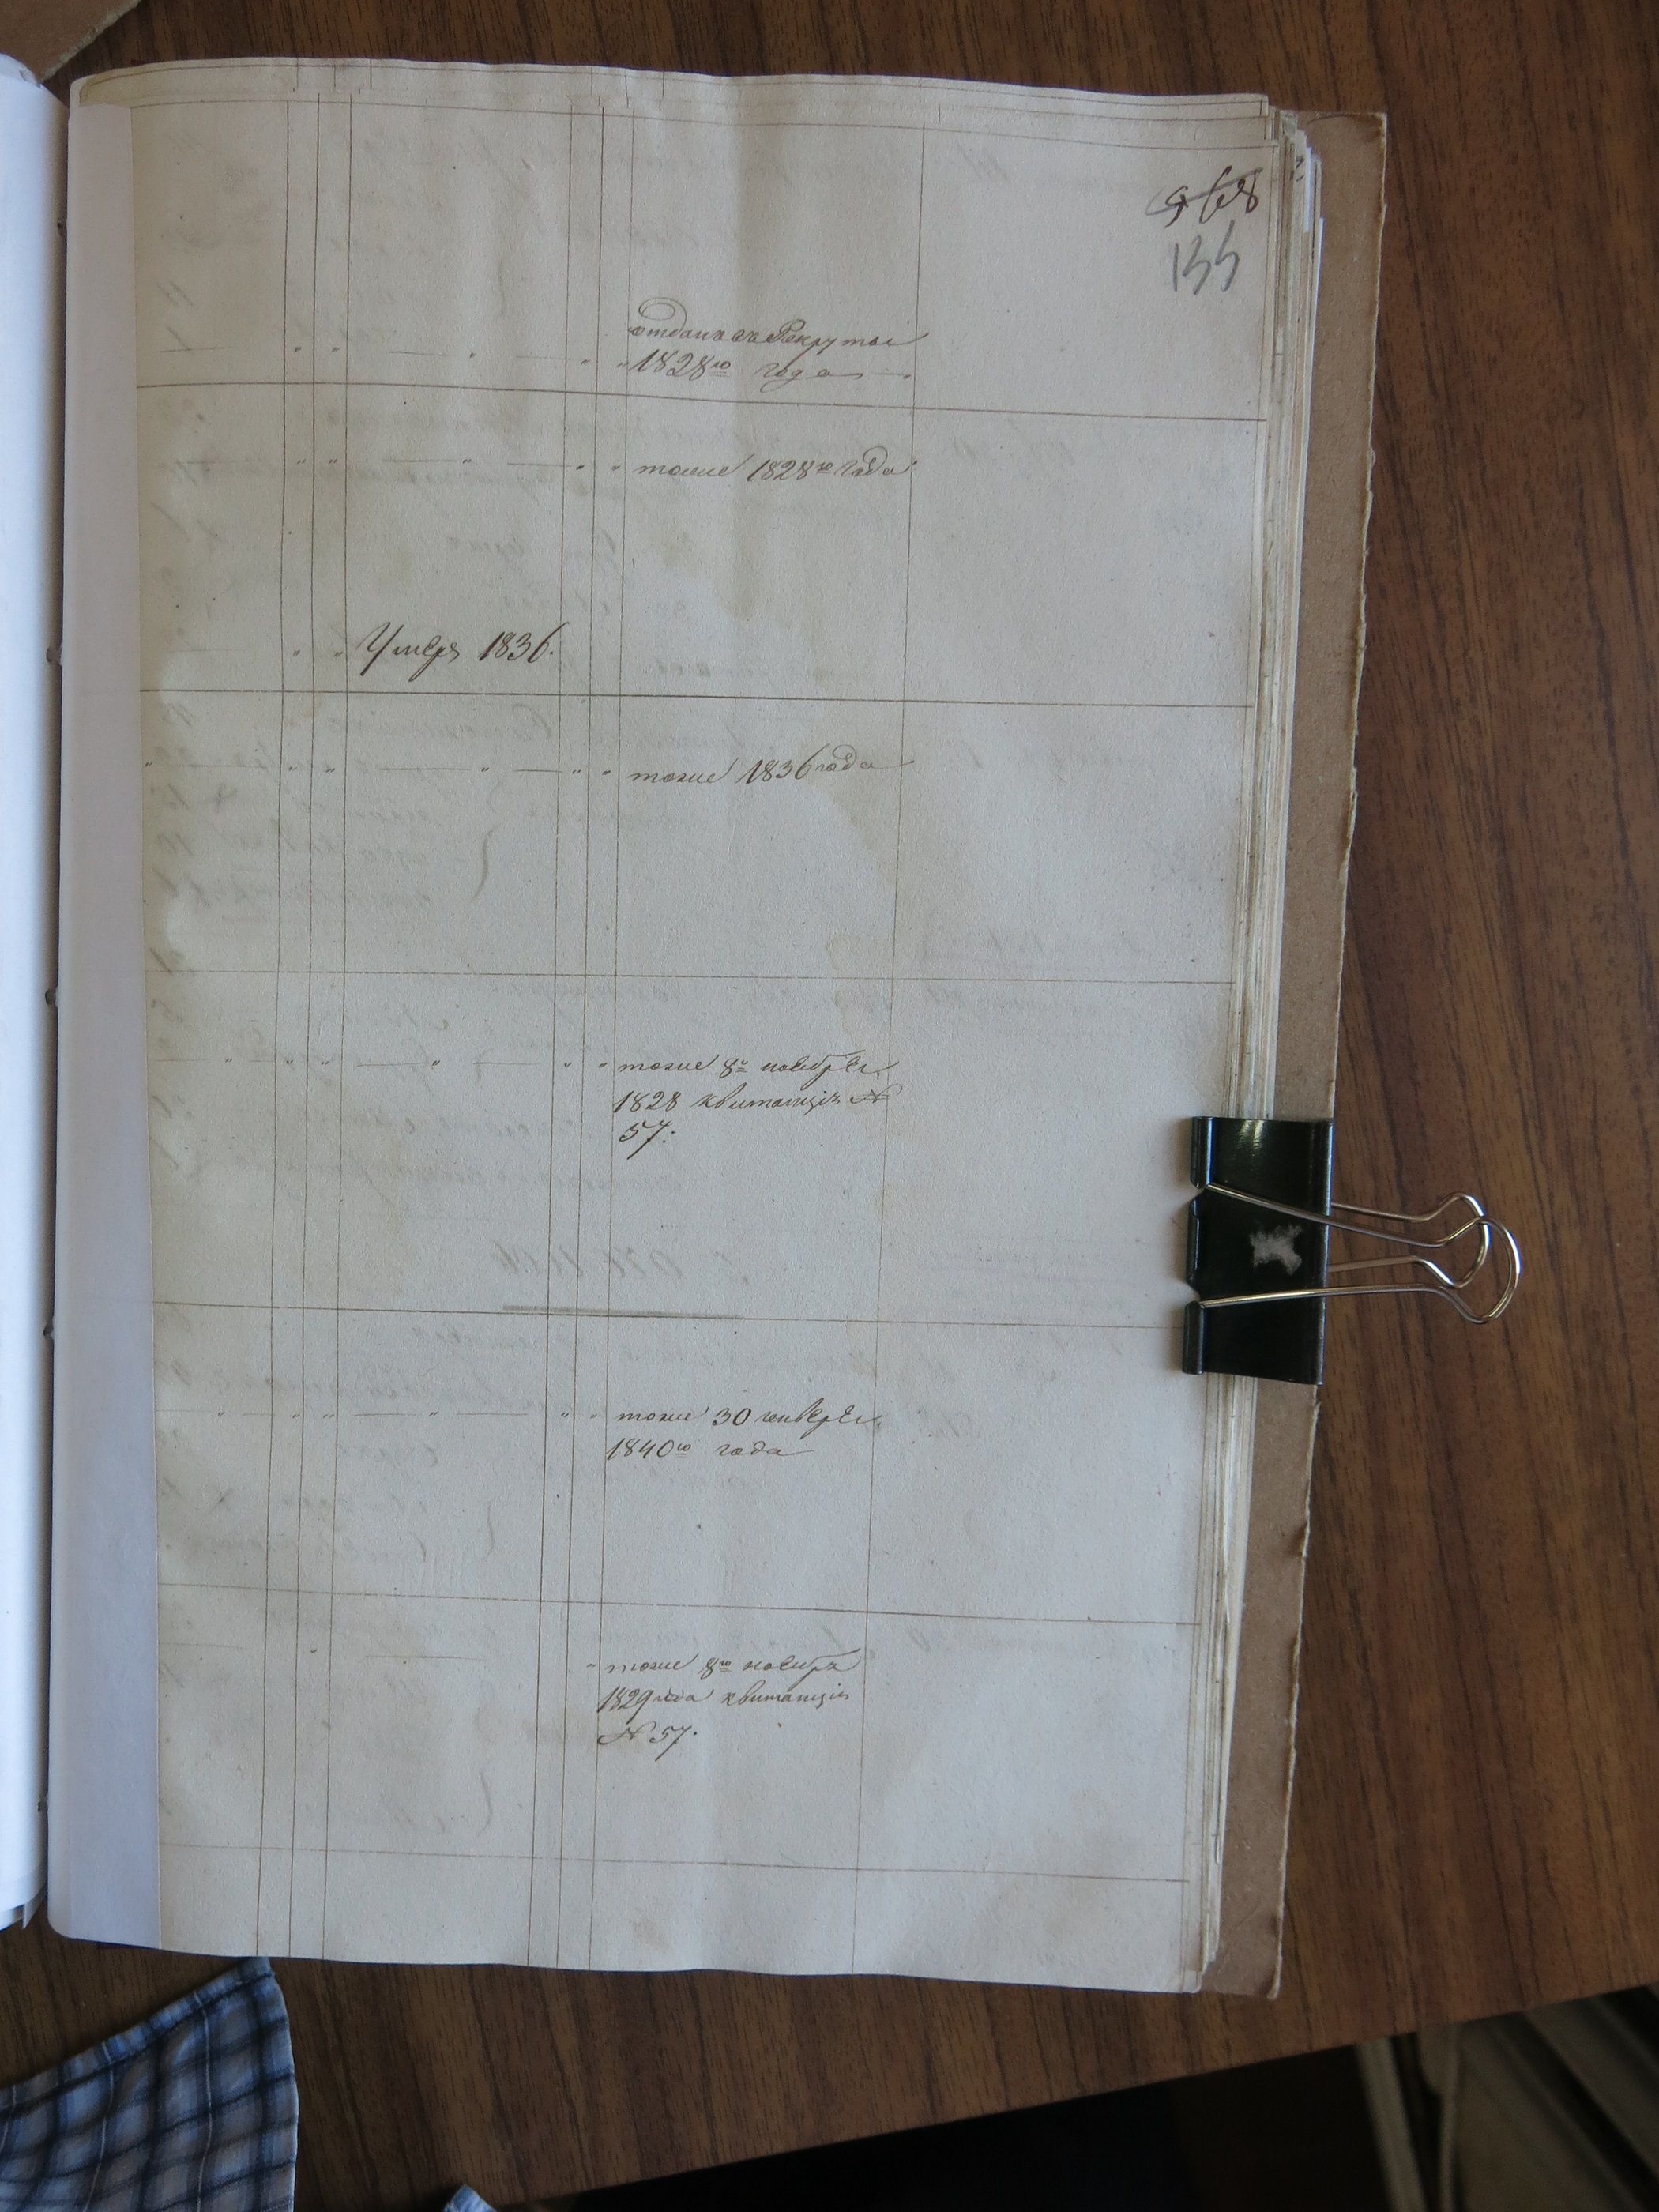 968
135
отданъ въ Рекруты
1828го года
тоже 1828го года
Умеръ 1836.
тоже 1836 года
тоже 8го ноября
1828 квитанція №
57:
тоже 30 генваря
1840го года
тоже 8го ноября
1829 года квитанція
№ 57.